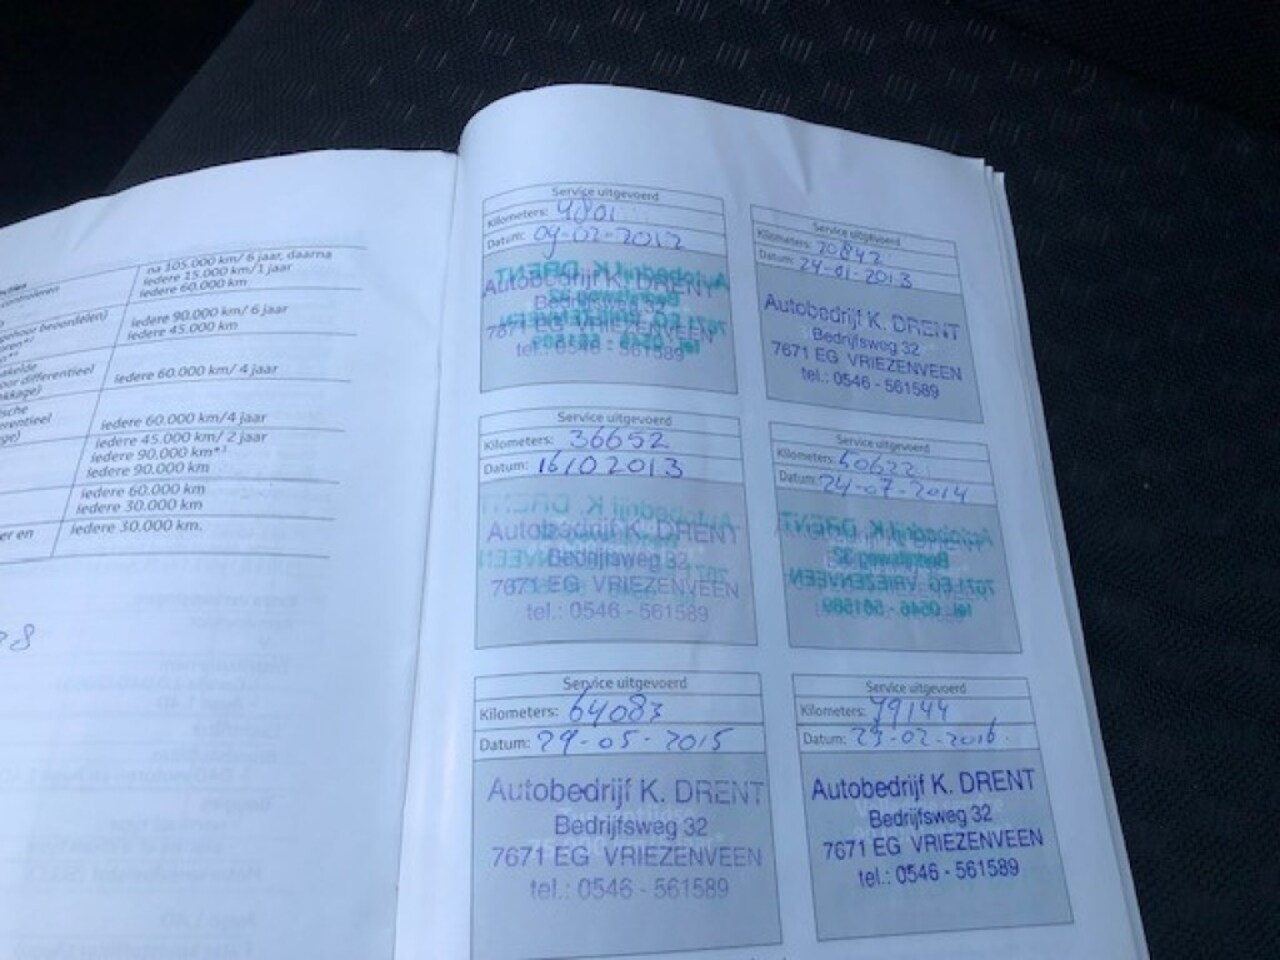 na 105.000 km/ 6 jaar, daarna
controleren
iedere 15.000 km/1 jaar
iedere 60.000 km
iedere 90.000 km/ 6 jaar
iedere 45.000 km
iedere 60.000 km/ 4 jaar
iedere 60.000 km/4 jaar
iedere 45.000 km/ 2 jaar
iedere 90.000 km*³
iedere 90.000 km
iedere 60.000 km
iedere 30.000 km
er en
iedere 30.000 km.
Service uitgevoerd
Kilometers: 4801
Datum: 09-02-2012
Autobedrijf K. DRENT
Bedrijfsweg 32
7671 EG VRIEZENVEEN
tel.: 0546 - 561589
Service uitgevoerd
Kilometers: 20842
Datum: 24-01-2013
Autobedrijf K. DRENT
Bedrijfsweg 32
7671 EG VRIEZENVEEN
tel.: 0546 - 561589
Service uitgevoerd
Kilometers: 36652
Datum: 16102013
Autobedrijf K. DRENT
Bedrijfsweg 32
7671 EG VRIEZENVEEN
tel.: 0546 - 561589
Service uitgevoerd
Kilometers: 50622
Datum: 24-07-2014
Autobedrijf K. DRENT
Bedrijfsweg 32
7671 EG VRIEZENVEEN
tel. 0546 - 561589
Service uitgevoerd
Kilometers: 64083
Datum: 29-05-2015
Autobedrijf K. DRENT
Bedrijfsweg 32
7671 EG VRIEZENVEEN
tel.: 0546 - 561589
Service uitgevoerd
Kilometers: 79144
Datum: 23-02-2016
Autobedrijf K. DRENT
Bedrijfsweg 32
7671 EG VRIEZENVEEN
tel.: 0546 - 561589